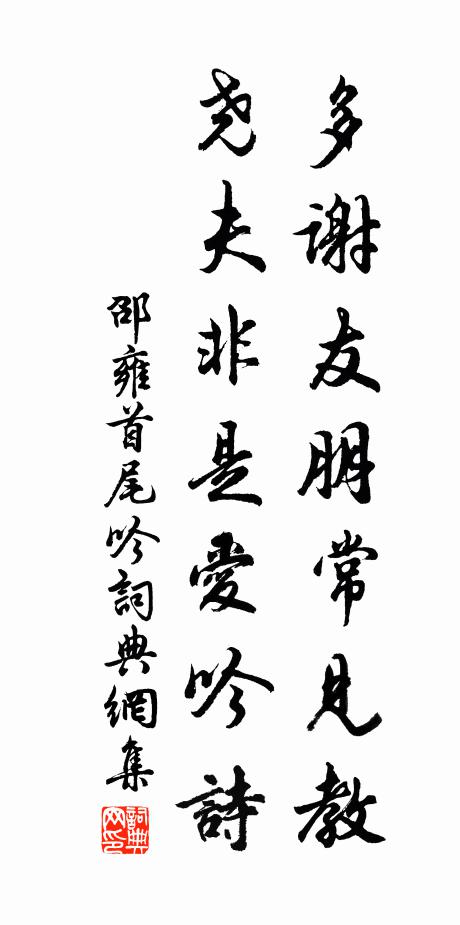 多謝友朋常見教
堯夫非是愛吟詩
邵雍首尾吟詞典網集
詞典网印